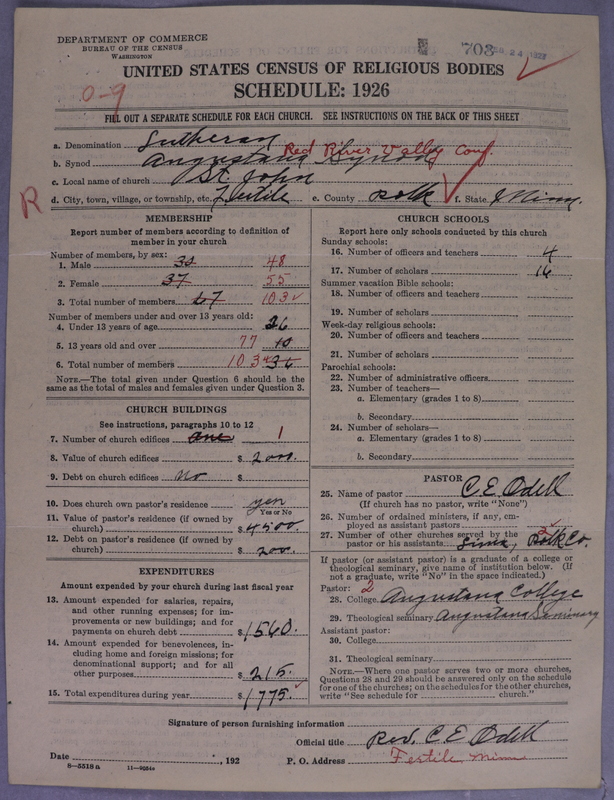 DEPARTMENT OF COMMERCE
BUREAU OF THE CENSUS
WASHINGTON
703
24 1927
UNITED STATES CENSUS OF RELIGIOUS BODIES
SCHEDULE: 1926
0-9
FILL OUT A SEPARATE SCHEDULE FOR EACH CHURCH. SEE INSTRUCTIONS ON THE BACK OF THIS SHEET
a. Denomination Lutheran
b. Synod Augustana Synod Red River Valley Conf.
c. Local name of church St. John
R
d. City, town, village, or township, etc. Fertile e. County Polk f. State Minn.
MEMBERSHIP
Report number of members according to definition of member in your church
Number of members, by sex:
1. Male 30 48
2. Female 37 55
3. Total number of members 67 103
Number of members under and over 13 years old:
4. Under 13 years of age 26
5. 13 years old and over 77 10
6. Total number of members 103 36
NOTE.—The total given under Question 6 should be the same as the total of males and females given under Question 3.
CHURCH BUILDINGS
See instructions, paragraphs 10 to 12
7. Number of church edifices one 1
8. Value of church edifices $ 2000.
9. Debt on church edifices No $
10. Does church own pastor's residence yes
Yes or No
11. Value of pastor's residence (if owned by church) $ 4500.
12. Debt on pastor's residence (if owned by church) $ 200.
EXPENDITURES
Amount expended by your church during last fiscal year
13. Amount expended for salaries, repairs, and other running expenses; for improvements or new buildings; and for payments on church debt $ 1560.
14. Amount expended for benevolences, including home and foreign missions; for denominational support; and for all other purposes $ 215.
15. Total expenditures during year $ 1775.
CHURCH SCHOOLS
Report here only schools conducted by this church
Sunday schools:
16. Number of officers and teachers 4
17. Number of scholars 16
Summer vacation Bible schools:
18. Number of officers and teachers
19. Number of scholars
Week-day religious schools:
20. Number of officers and teachers
21. Number of scholars
Parochial schools:
22. Number of administrative officers
23. Number of teachers—
a. Elementary (grades 1 to 8)
b. Secondary
24. Number of scholars—
a. Elementary (grades 1 to 8)
b. Secondary
PASTOR
25. Name of pastor C. E. Odell
(If church has no pastor, write "None")
26. Number of ordained ministers, if any, employed as assistant pastors
27. Number of other churches served by the pastor or his assistants 2 Polk Co.
If pastor (or assistant pastor) is a graduate of a college or theological seminary, give name of institution below. (If not a graduate, write "No" in the space indicated.)
Pastor: 2
28. College Augustana College
29. Theological seminary Augustana Seminary
Assistant pastor:
30. College
31. Theological seminary
NOTE.—Where one pastor serves two or more churches, Questions 28 and 29 should be answered only on the schedule for one of the churches; on the schedules for the other churches, write "See schedule for church."
Signature of person furnishing information
Official title Rev. C. E. Odell
Date , 192 P. O. Address Fertile Minn
8—5518 a 11—9554a